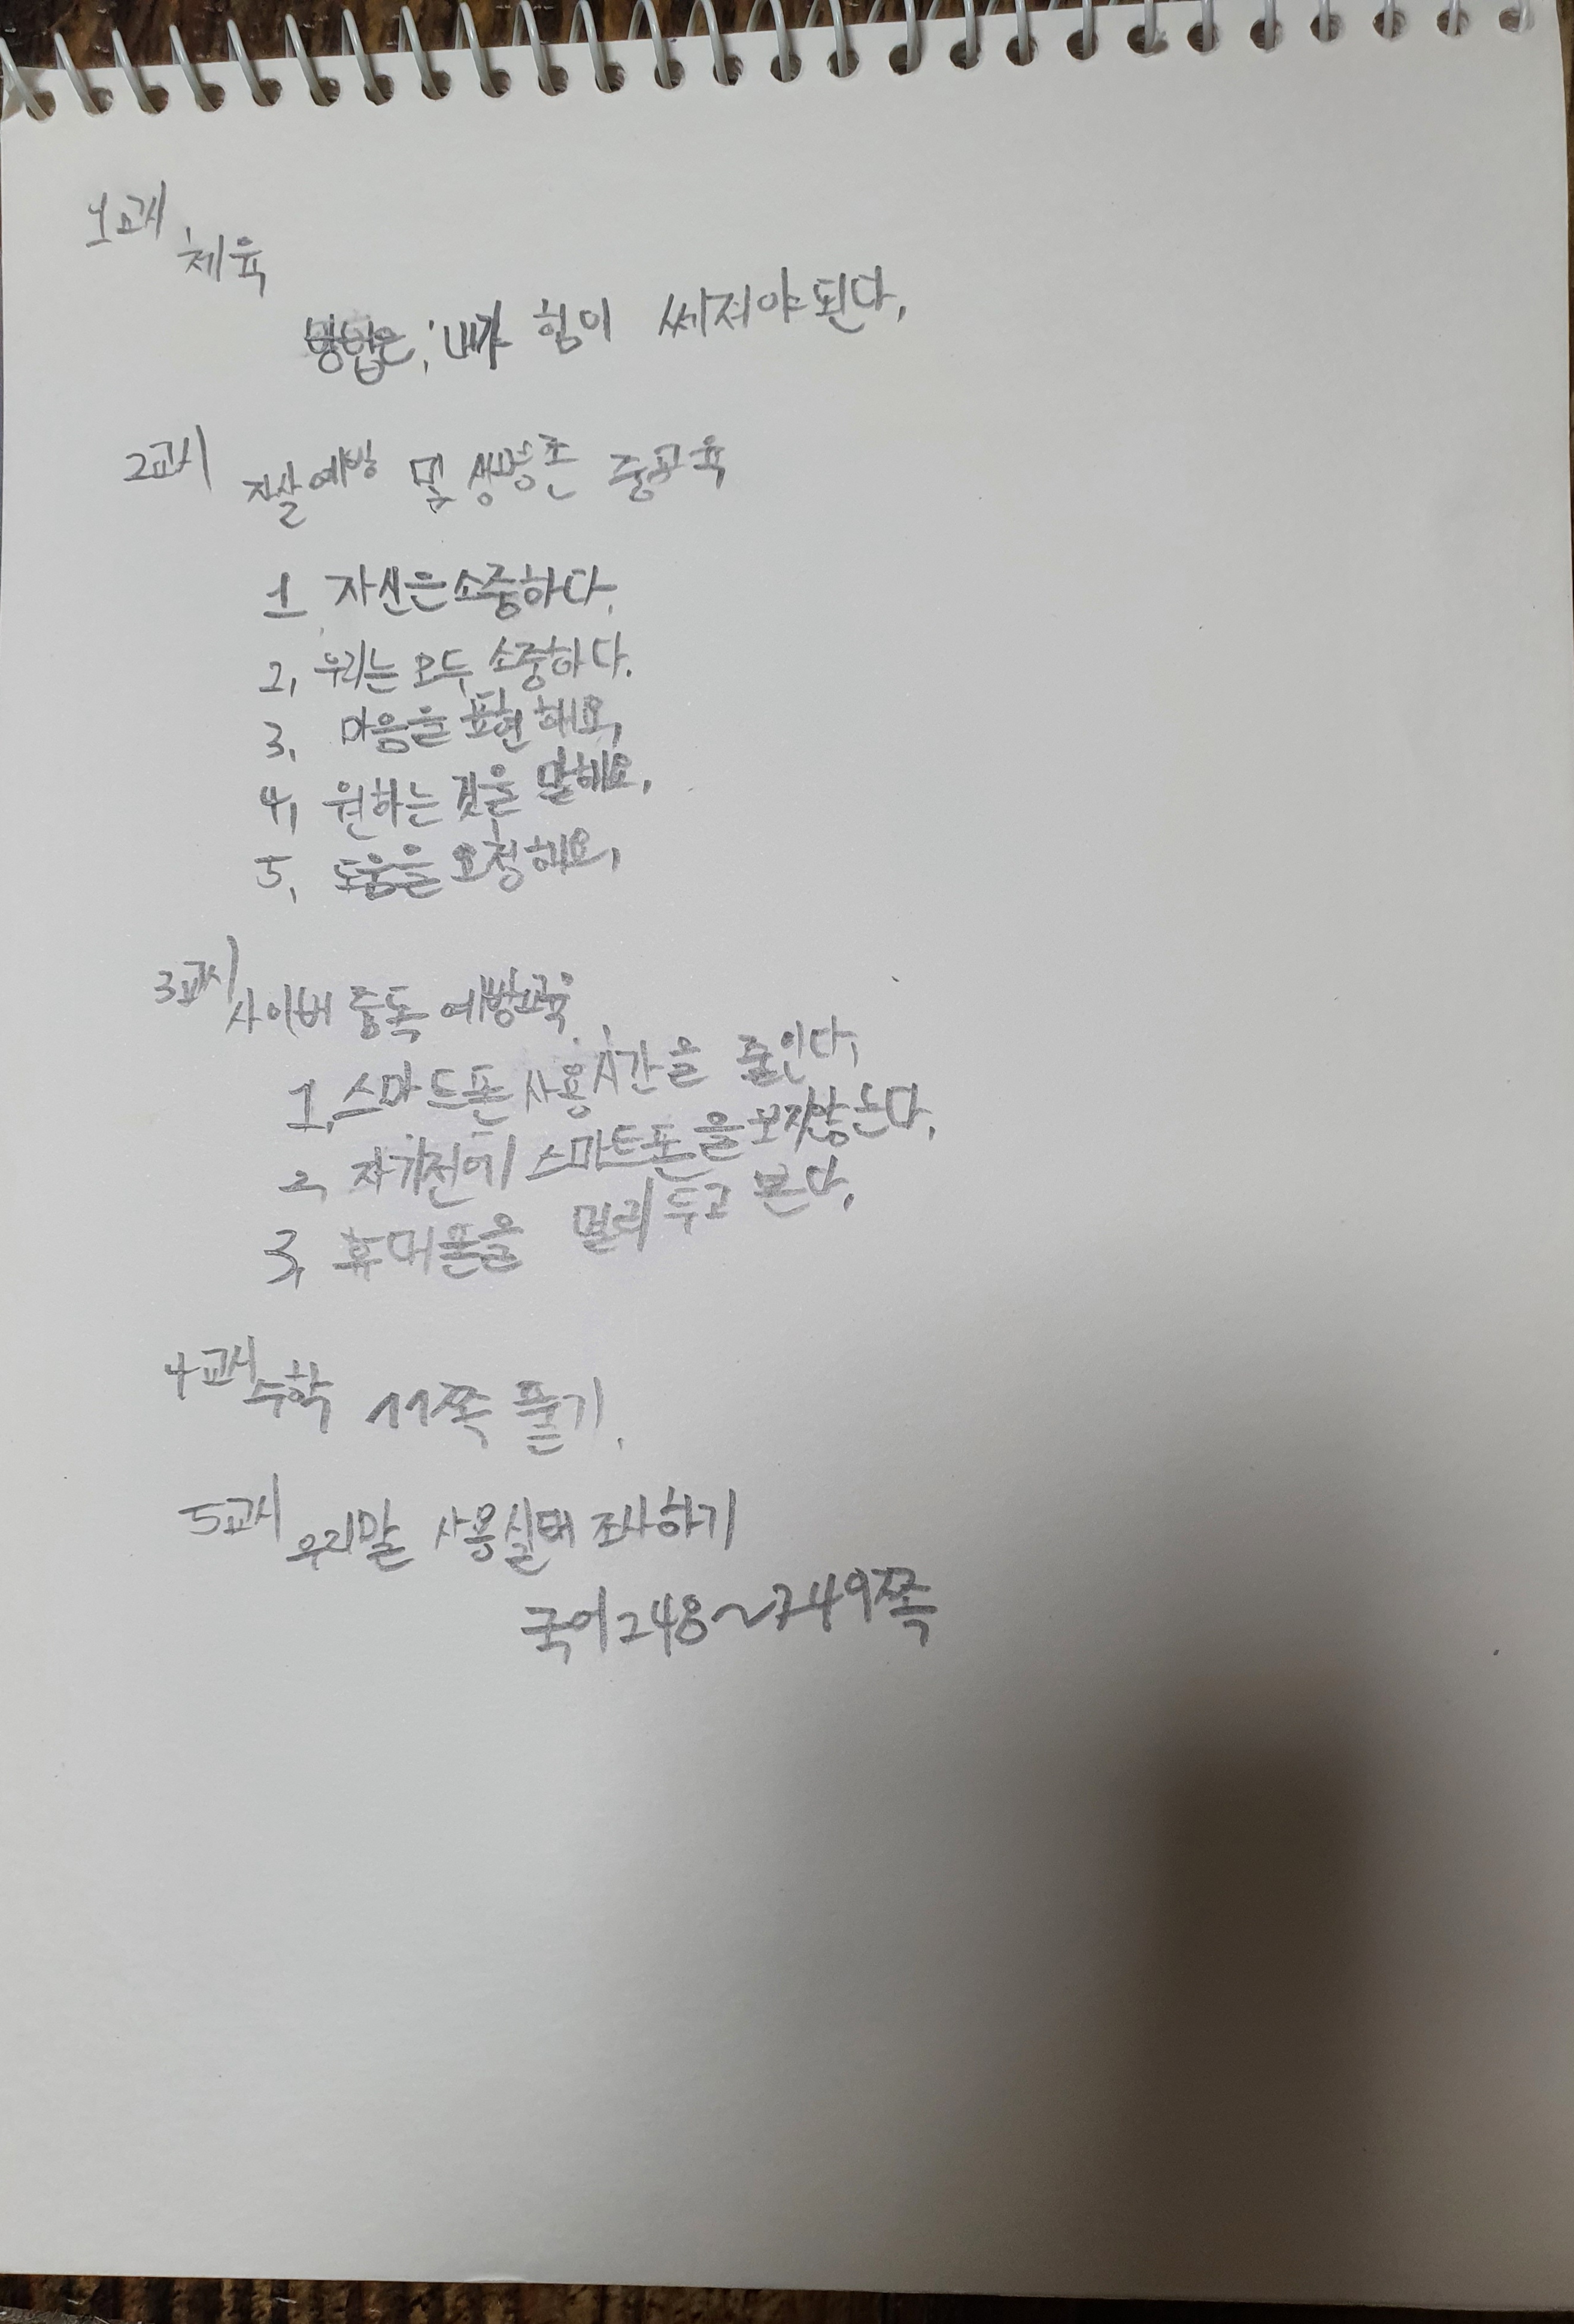 1교시
체육
방법은, 내가 힘이 쎄져야된다.
2교시 자살예방 및 생명존중교육
1 자신은소중하다.
2, 우리는 모두 소중하다.
3, 마음을 표현해요,
4, 원하는 것을 말해요,
5, 도움을 요청해요,
3교시 사이버 중독 예방교육
1, 스마트폰 사용시간을 줄인다,
2, 자기전에 스마트폰을보지않는다,
3, 휴대폰을 멀리두고 본다,
4교시 수학 11쪽 풀기.
5교시 우리말 사용실태 조사하기
국어248~249쪽